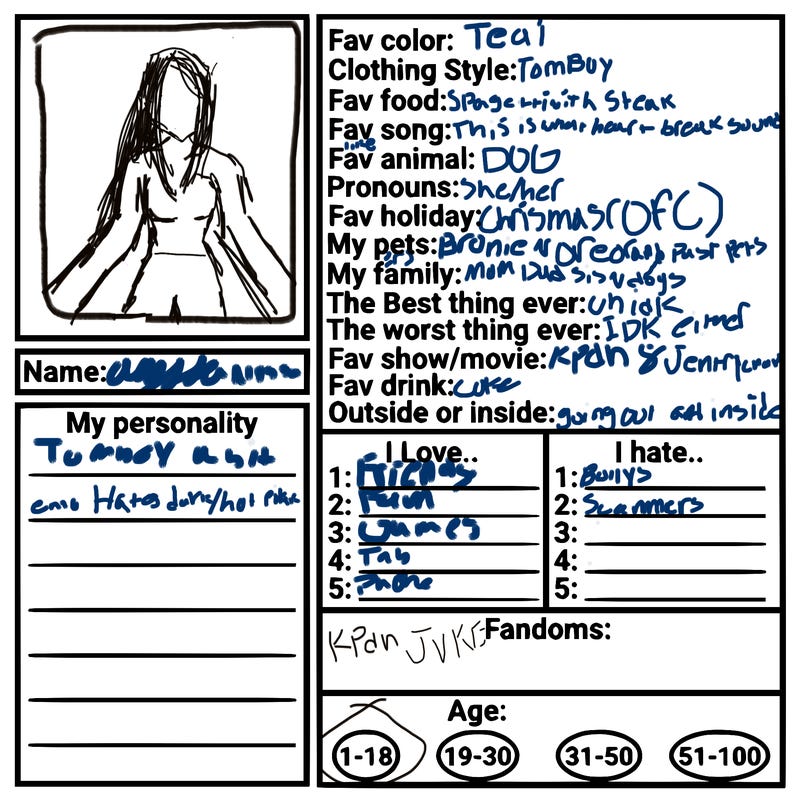 Name:
My personality
emo Hates
Fav color: Teal
Clothing Style:TomBoy
Fav food: Steak
Fav song:This is what heart break sound
like
Fav animal: DOG
Pronouns:She/her
Fav holiday:Chrismas(OFC)
My pets:Bronie N Oreo past pets
My family:mom Dad sis
The Best thing ever:Uh idk
The worst thing ever:IDK
Fav show/movie:Kpdh &
Fav drink:coke
Outside or inside:going out inside
I Love..
1:Friends
2:
3:Games
4:Tab
5:Phone
I hate..
1:Bullys
2:Scammers
3:
4:
5:
Fandoms:
Kpdh JVKE
Age:
1-18 19-30 31-50 51-100